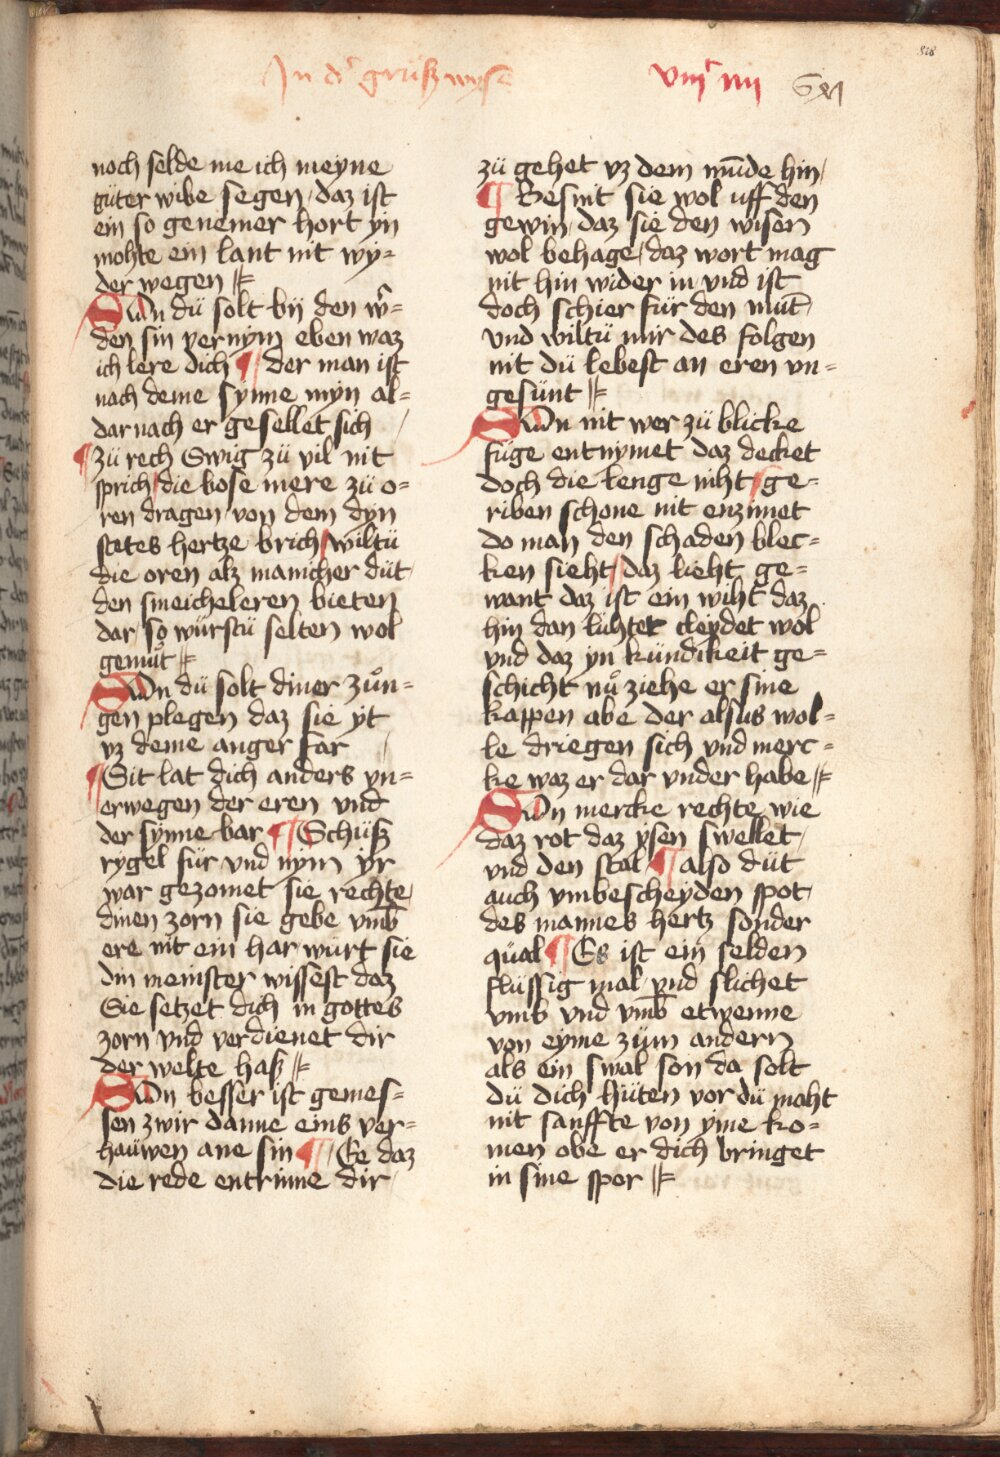 In dʾ grußz wyse
viijᶜ iiij
818
noch selde me ich meyne
güter wibe segen / daz ist
ein so genemer hort yn
mohte ein lant nit wy=
der wegen
Sun dü solt bij den wʾ=
den sin vernym eben waz
ich lere dich ¶ der man ist
nach deme synne myn al=
dar nach er gesellet sich
¶ zü rech Swig zü vil nit
sprich / die bose mere zü o=
ren dragen von dem dyn
stetes hertze brich / wiltü
die oren alz manicher düt
den smeicheleren bieten
dar / so würstü selten wol
gemuͦt
Sun dü solt diner zuͦn=
gen plegen daz sie yt
vz deme anger far
¶ Sit lat dich anders vn=
erwegen der eren vnd
der synne bar ¶ Schüsz
rygel für vnd nym yr
war gezomet sie rechte
dinen zorn sie gebe vmb
ere nit ein har wurt sie
din meinster wissest daz
Sie setzet dich in gottes
zorn vnd verdienet dir
der welte hasz
Sun besser ist gemes=
sen zwir danne eins ver=
hauwen ane sin ¶ Ee daz
die rede entrinne dir
zü gehet vz dem mūde hin /
¶ Besnit sie wol uff den
gewin / daz sie den wisen
wol behage / daz wort mag
nit hin wider in vnd ist
doch schier für den müt
vnd wiltü mir des folgen
nit dü lebest an eren vn=
gesünt
Sun nit wer zü blicke
füge entnymet daz decket
doch die lenge niht / ge=
riben schone nit enzimet
do man den schaden blec=
ken sieht / daz lieht ge=
want daz ist ein wiht daz
hin dan lühtet cleydet wol
vnd daz yn kündikeit ge=
schicht nuͦ ziehe er sine
kappen abe der alsus wol=
le driegen sich vnd merc=
ke waz er dar vnder habe
Sun mercke rechte wie
daz rot daz ysen swellet
vnd den stal ¶ also düt
auch vmbescheyden spot
des mannes hertz sonder
qüal ¶ Es ist ein selden
flüssig mal vnd slichet
vmb vnd vmb etwenne
von eyme züm andern
als ein swal son da solt
dü dich hüten vor dü moht
nit sanffte von yme ko=
men obe er dich bringet
in sine spor